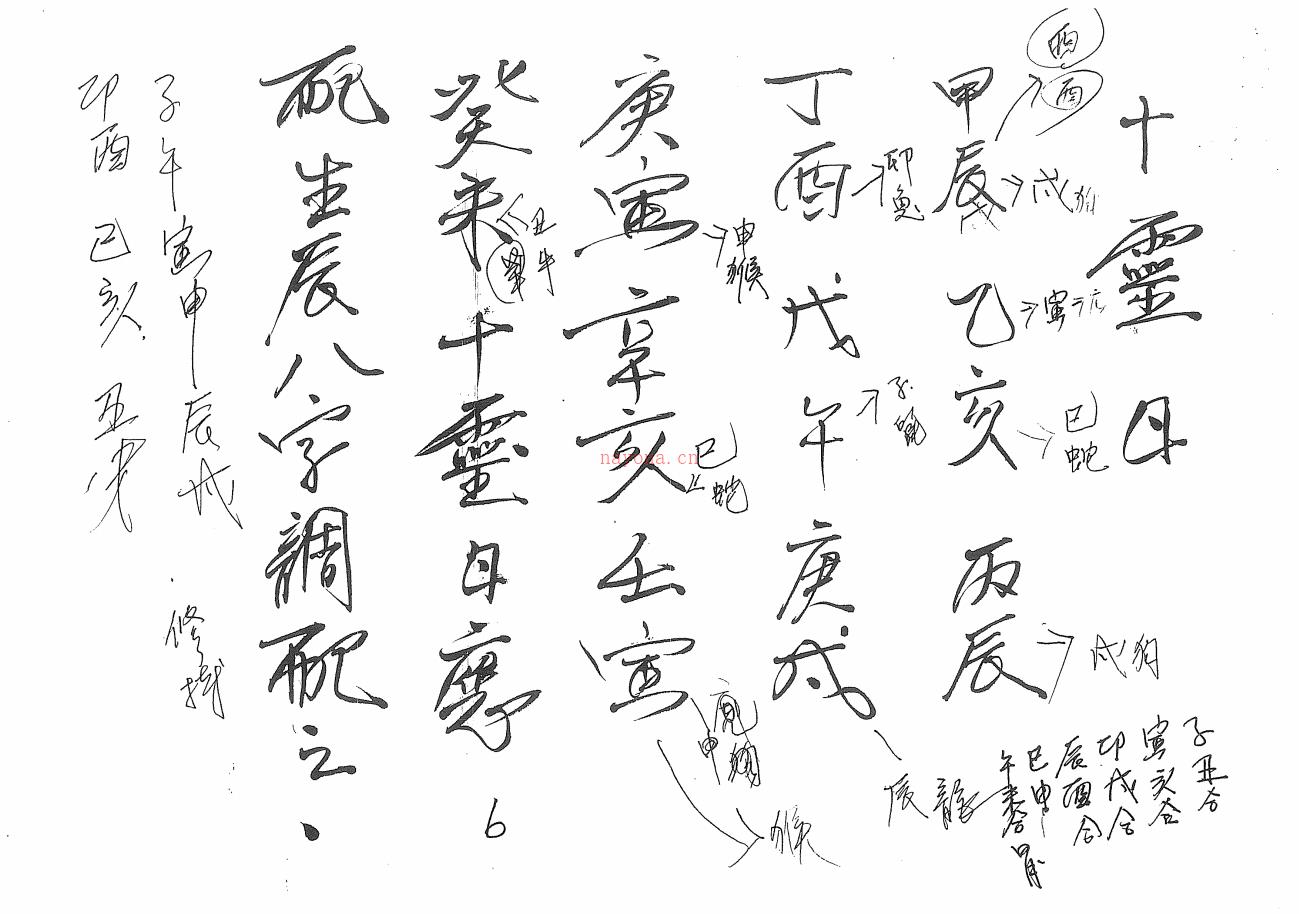 十靈日
甲辰 乙亥 丙辰
丁酉 戊午 庚戌
庚寅 辛亥 壬寅
癸未 十靈日應
配生辰八字調配之.
子午 寅申 辰戌
卯酉 巳亥 丑未
酉
酉
戌狗
寅
巳蛇
戌狗
卯兔
子鼠
辰龍
申猴
巳蛇
申
猴
丑牛
子丑合
寅亥合
卯戌合
辰酉合
巳申
午未合
6
nayona.cn